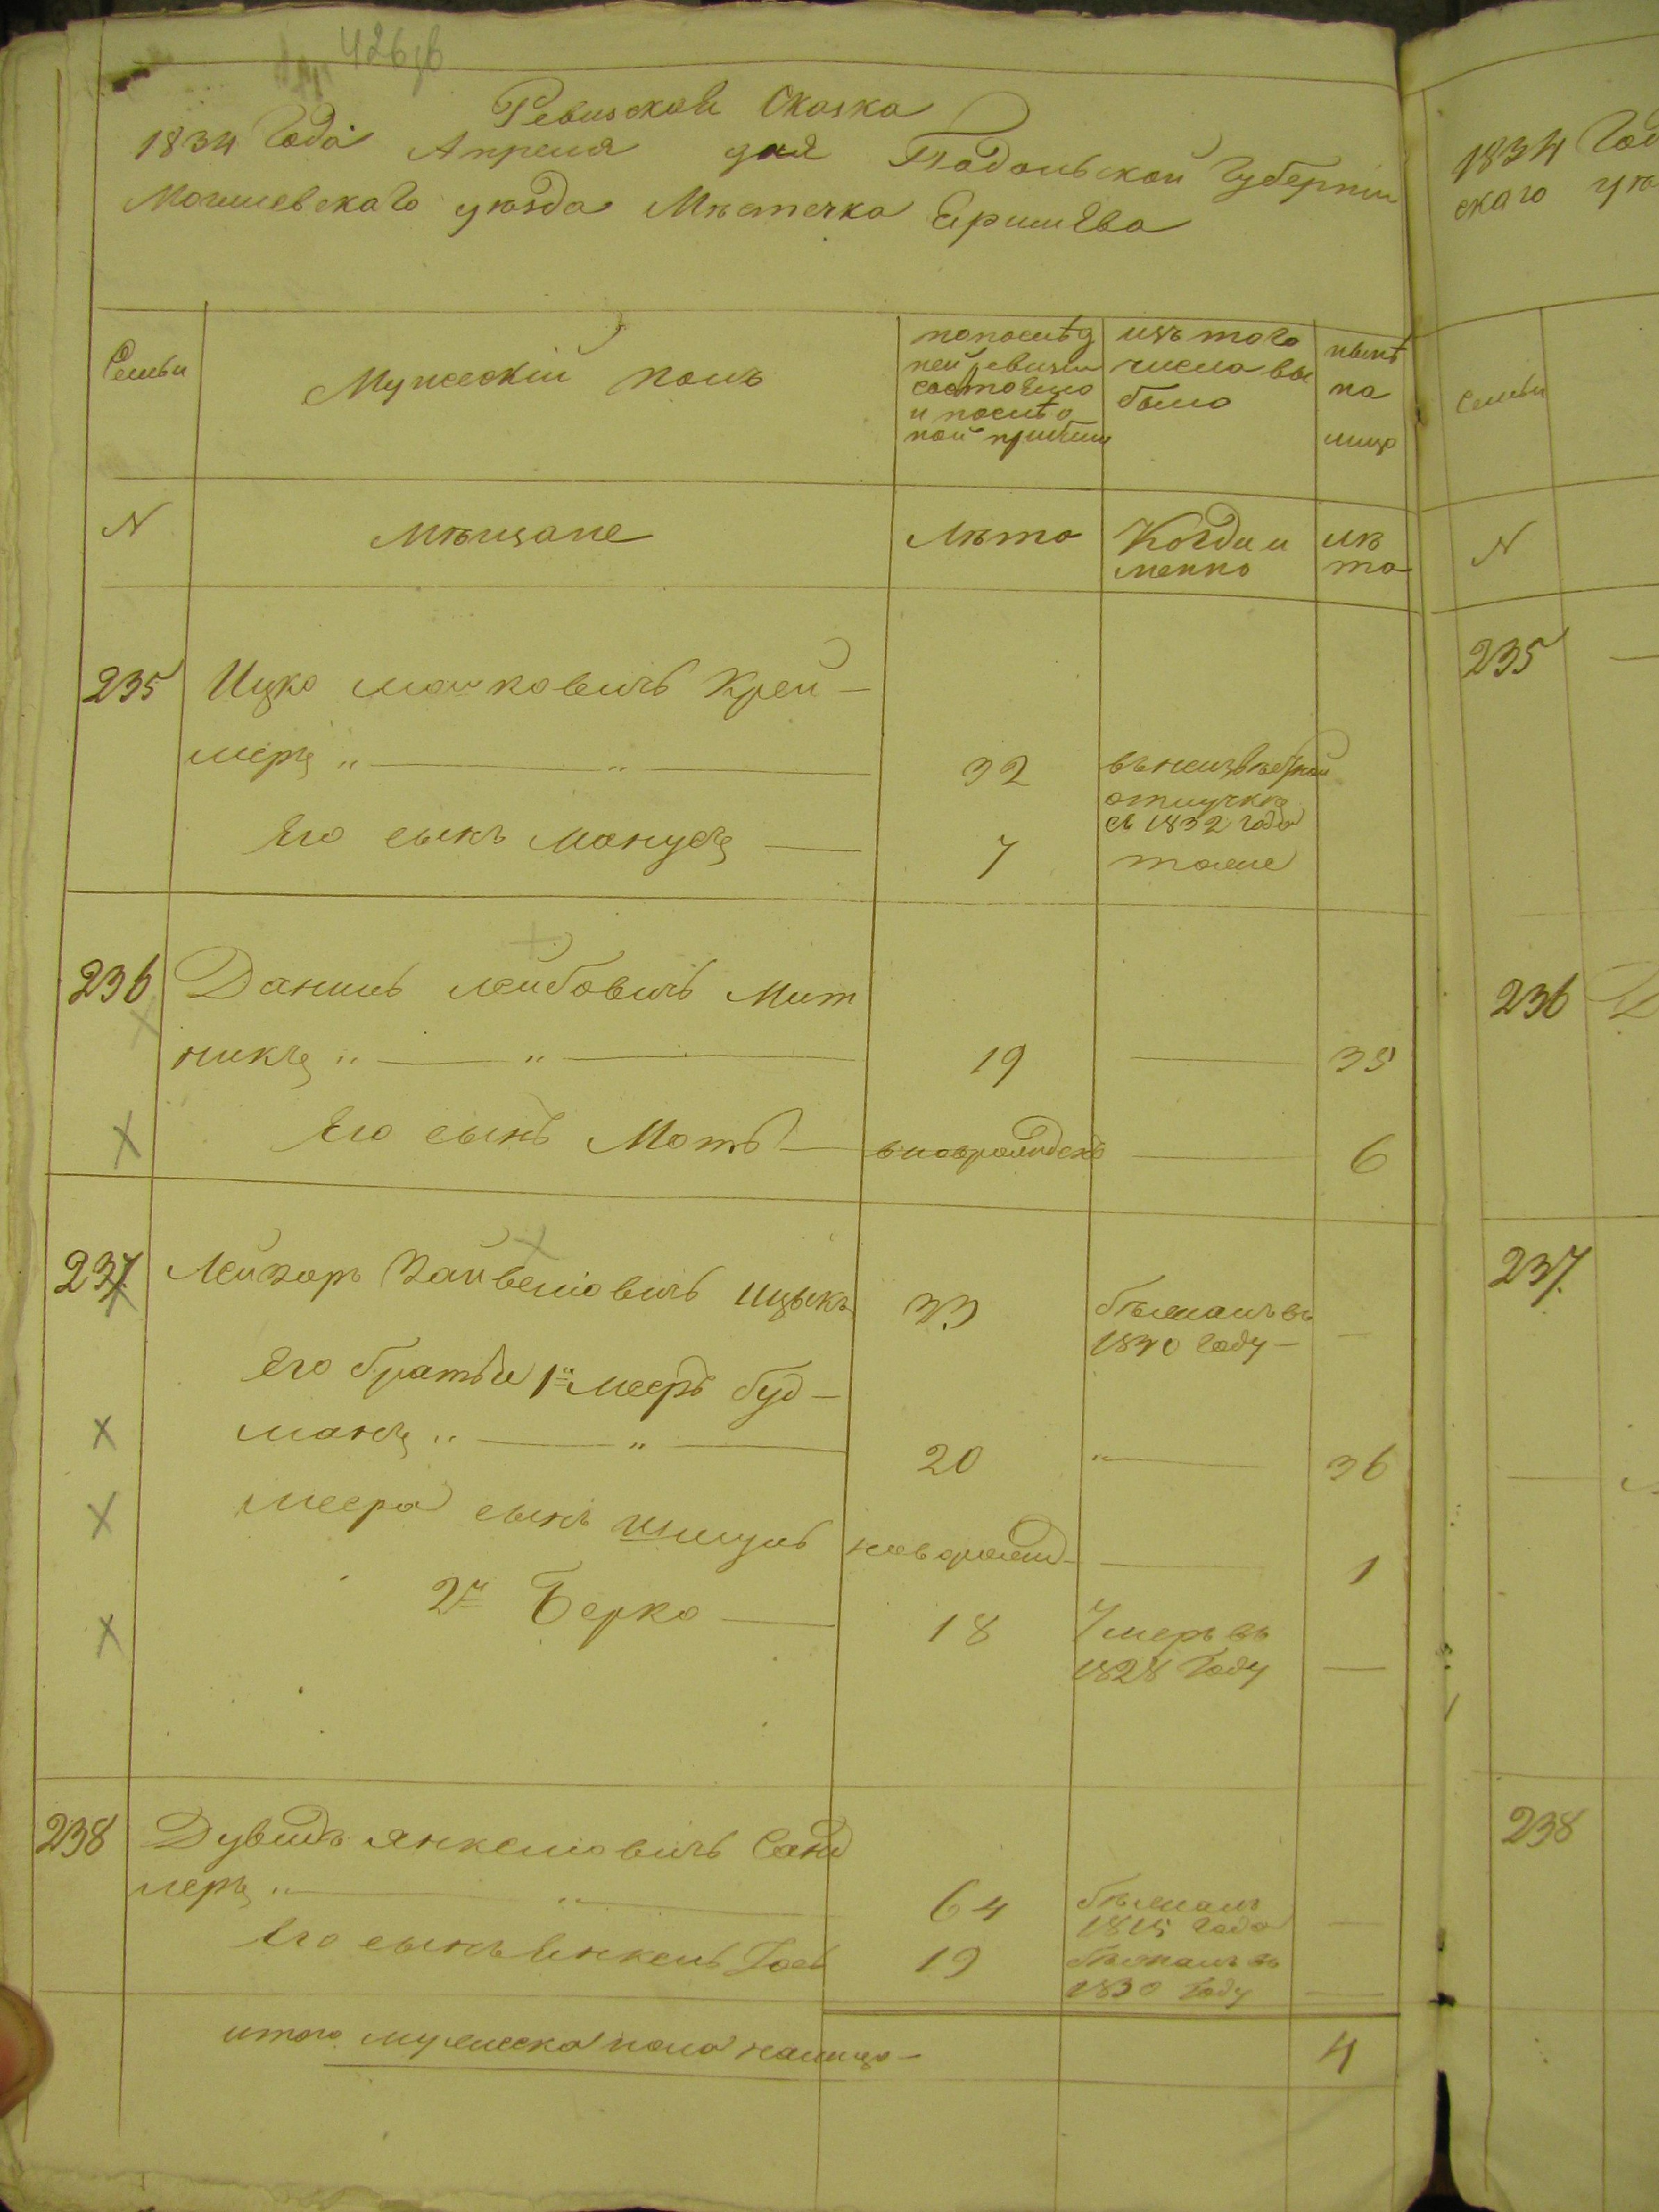 426 об
Ревизская Сказка
1834 Года Апреля дня Подольской Губернии
Могилевскаго уѣзда Мѣстечка Яришева
Семьи
Мужескій полъ
попослѣд
ней ревизіи
состояло
и послѣ о
ной прибыло
изъ того
числа вы
было
нынѣ
на
лицо
N
мѣщане
лѣта
Когда и
менно
лѣ
та
235 Ицко Манковичъ Крей-
меръ „ — „ — 32 въ неизвѣстной
отлучкѣ
съ 1832 года
Его сынъ Манусъ — 7 тоже
236 Даниль Лейбовичъ Мит
никъ „ — „ — 19 — 35
Его сынъ Моть — новорожденъ — 6
237 Лейзоръ Зайвеловичъ Ицыкъ 33 бѣжалъ въ
1830 году — —
Его братья 1й Мееръ буд-
манъ „ — „ — 20 „ — 36
Меера сынъ Шмуль новорожд- — 1
2й Берко — 18 Умеръ въ
1828 Году —
238 Дувидъ Янкелиовичъ Санд
леръ „ — „ — 64 бѣжалъ
1815 года —
Его сынъ Янкель 19 бѣжалъ въ
1830 Году —
итого мужеска пола налицо — 4
1834 Год
скаго уѣ
Семьи
N
235 —
236 Д
237
238